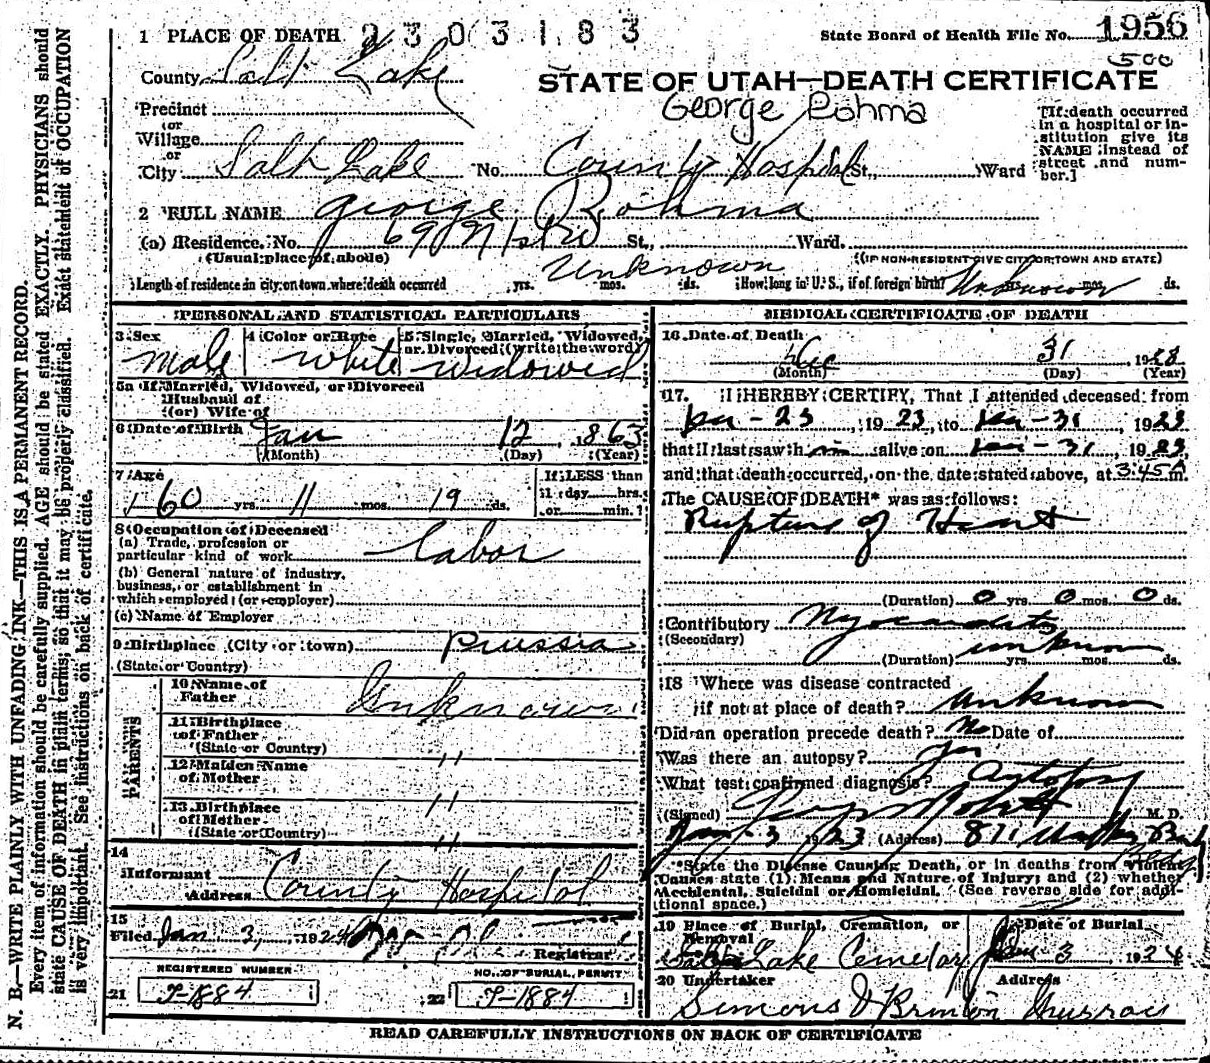 1 PLACE OF DEATH 2303183
State Board of Health File No. 1956
500
County Salt Lake
STATE OF UTAH—DEATH CERTIFICATE
George Rohma
Precinct
or
Village
or
City Salt Lake No. County Hospital St., Ward
[If death occurred in a hospital or institution give its NAME instead of street and number.]
2 FULL NAME George Rohma
(a) Residence. No. St., Ward.
(Usual place of abode) (IF NON-RESIDENT GIVE CITY OR TOWN AND STATE)
Length of residence in city or town where death occurred Unknown yrs. mos. ds. How long in U. S., if of foreign birth? Unknown yrs. mos. ds.
PERSONAL AND STATISTICAL PARTICULARS
3 Sex 4 Color or Race 5 Single, Married, Widowed,
or Divorced (write the word)
Male White Widowed
5a If Married, Widowed, or Divorced
Husband of
(or) Wife of
6 Date of Birth Jan 12, 1863
(Month) (Day) (Year)
7 Age If LESS than
60 yrs. 11 mos. 19 ds. 1 day hrs.
or min.?
8 Occupation of Deceased
(a) Trade, profession or
particular kind of work labor
(b) General nature of industry,
business, or establishment in
which employed (or employer)
(c) Name of Employer
9 Birthplace (City or town) Prussia
(State or Country)
PARENTS
10 Name of
Father Unknown
11 Birthplace
of Father
(State or Country) "
12 Maiden Name
of Mother "
13 Birthplace
of Mother
(State or Country) "
14
Informant County Hospital
Address
15
Filed Jan 3, 1924
Registrar
REGISTERED NUMBER NO. OF BURIAL PERMIT
21 T-1884 22 T-1884
MEDICAL CERTIFICATE OF DEATH
16 Date of Death
31
(Month) (Day) (Year)
17. I HEREBY CERTIFY, That I attended deceased from
23, 1923, to 31 1923
that I last saw him alive on 31, 1923,
and that death occurred, on the date stated above, at 3:45 A m.
The CAUSE OF DEATH* was as follows:
Rupture of Heart
(Duration) 0 yrs. 0 mos. 0 ds.
Contributory Myocarditis
(Secondary)
(Duration) unknown yrs. mos. ds.
18 Where was disease contracted
if not at place of death? Unknown
Did an operation precede death? No Date of
Was there an autopsy? Yes
What test confirmed diagnosis? Autopsy
(Signed) M. D.
Jan 3 1923 (Address) 811
*State the Disease Causing Death, or in deaths from Violent
Causes state (1) Means and Nature of Injury; and (2) whether
Accidental, Suicidal or Homicidal. (See reverse side for additional space.)
19 Place of Burial, Cremation, or Removal Date of Burial
Salt Lake Cemetery Jan 3 1924
20 Undertaker Address
Murray
READ CAREFULLY INSTRUCTIONS ON BACK OF CERTIFICATE
N. B.—WRITE PLAINLY WITH UNFADING INK—THIS IS A PERMANENT RECORD.
Every item of information should be carefully supplied. AGE should be stated EXACTLY. PHYSICIANS should
state CAUSE OF DEATH in plain terms, so that it may be properly classified. Exact statement of OCCUPATION
is very important. See instructions on back of certificate.